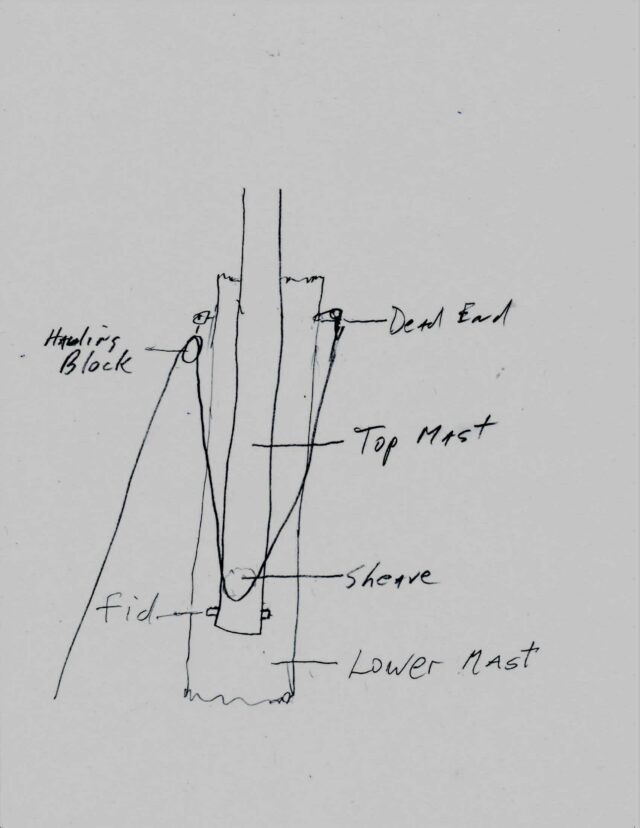 Hauling
Block
Dead End
Top Mast
Sheave
fid
Lower Mast